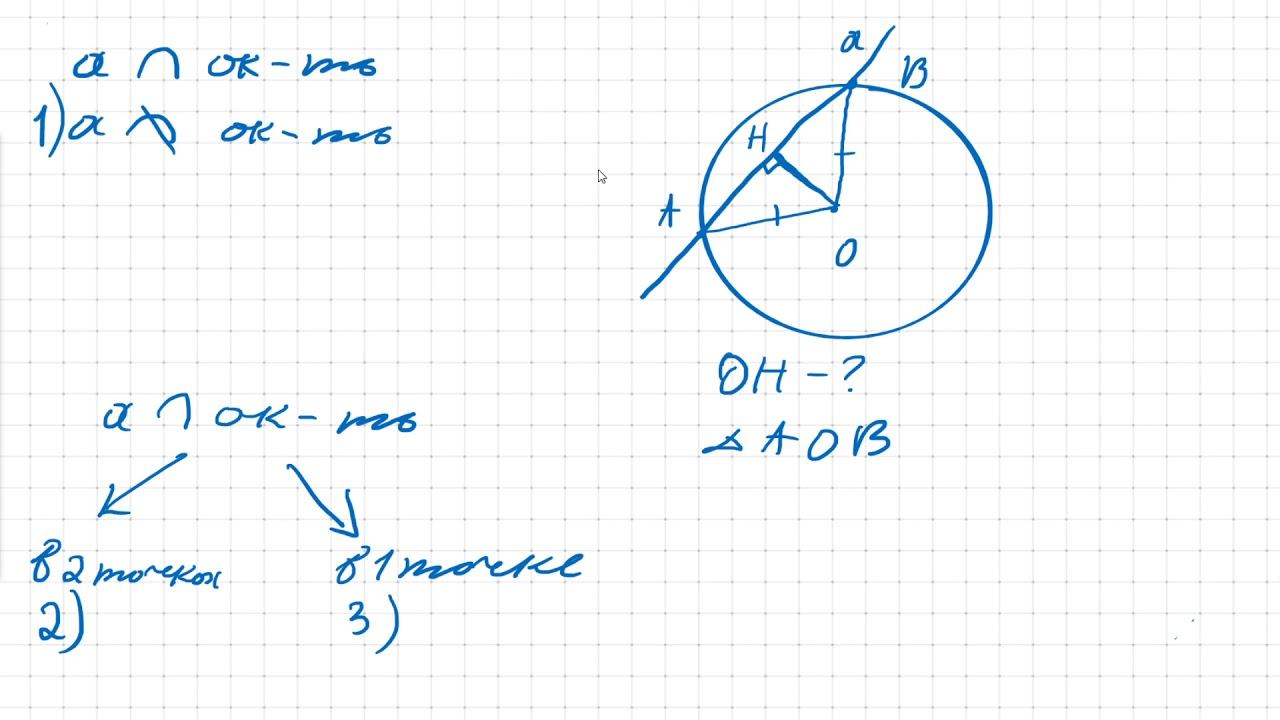 a ∩ ок-ть
1) a ∩̸ ок-ть
a ∩ ок-ть
в 2 точках
2)
в 1 точке
3)
a
B
H
A
O
OH - ?
△ AOB